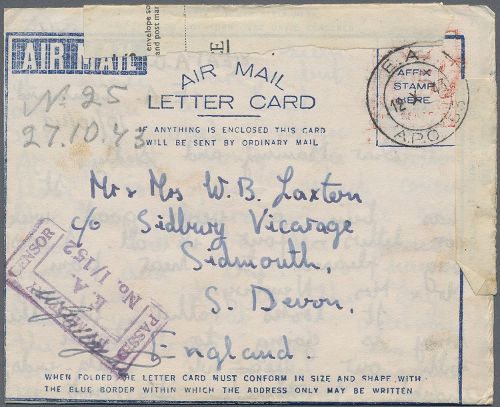 envelope so
and post mar
AIR MAIL
AIR MAIL
LETTER CARD
IF ANYTHING IS ENCLOSED THIS CARD
WILL BE SENT BY ORDINARY MAIL
E.A.
AFFIX
STAMP
HERE
12 X 43
A.P.O.
No 25
27.10.43
Mr & Mrs W. B. Laxton
c/o Sidbury Vicarage
Sidmouth,
S. Devon.
England.
PASSED
E. A.
No. 1/152
CENSOR
WHEN FOLDED THE LETTER CARD MUST CONFORM IN SIZE AND SHAPE WITH
THE BLUE BORDER WITHIN WHICH THE ADDRESS ONLY MAY BE WRITTEN